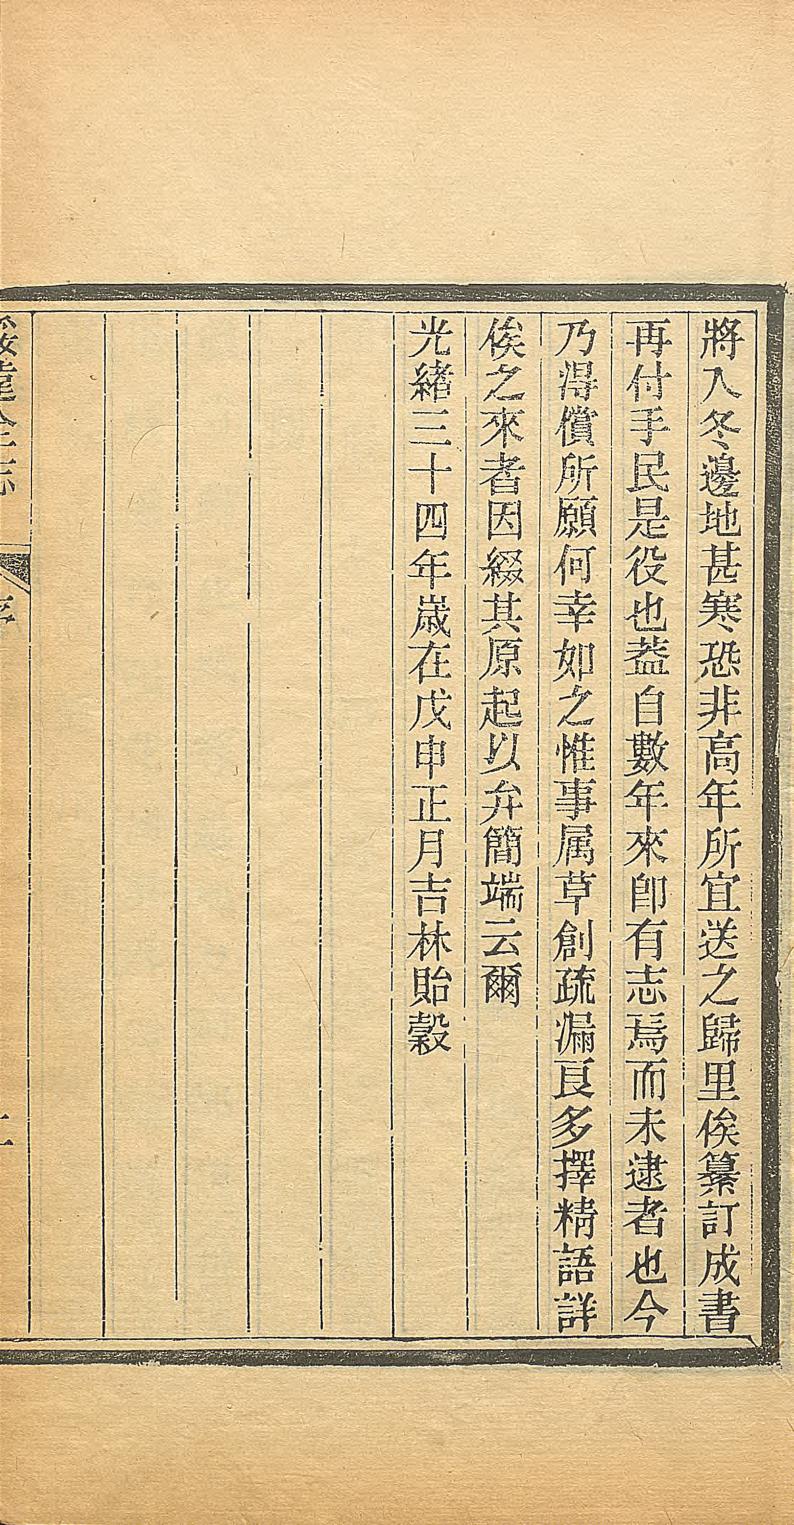 將入冬邊地甚寒恐非高年所宜送之歸里俟纂訂成書
再付手民是役也葢自數年來卽有志焉而未逮者也今
乃得償所願何幸如之惟事属草創疏漏良多擇精語詳
俟之來者因綴其原起以弁簡端云爾
光緒三十四年歲在戊申正月吉林貽穀
綏遠全志
序
二